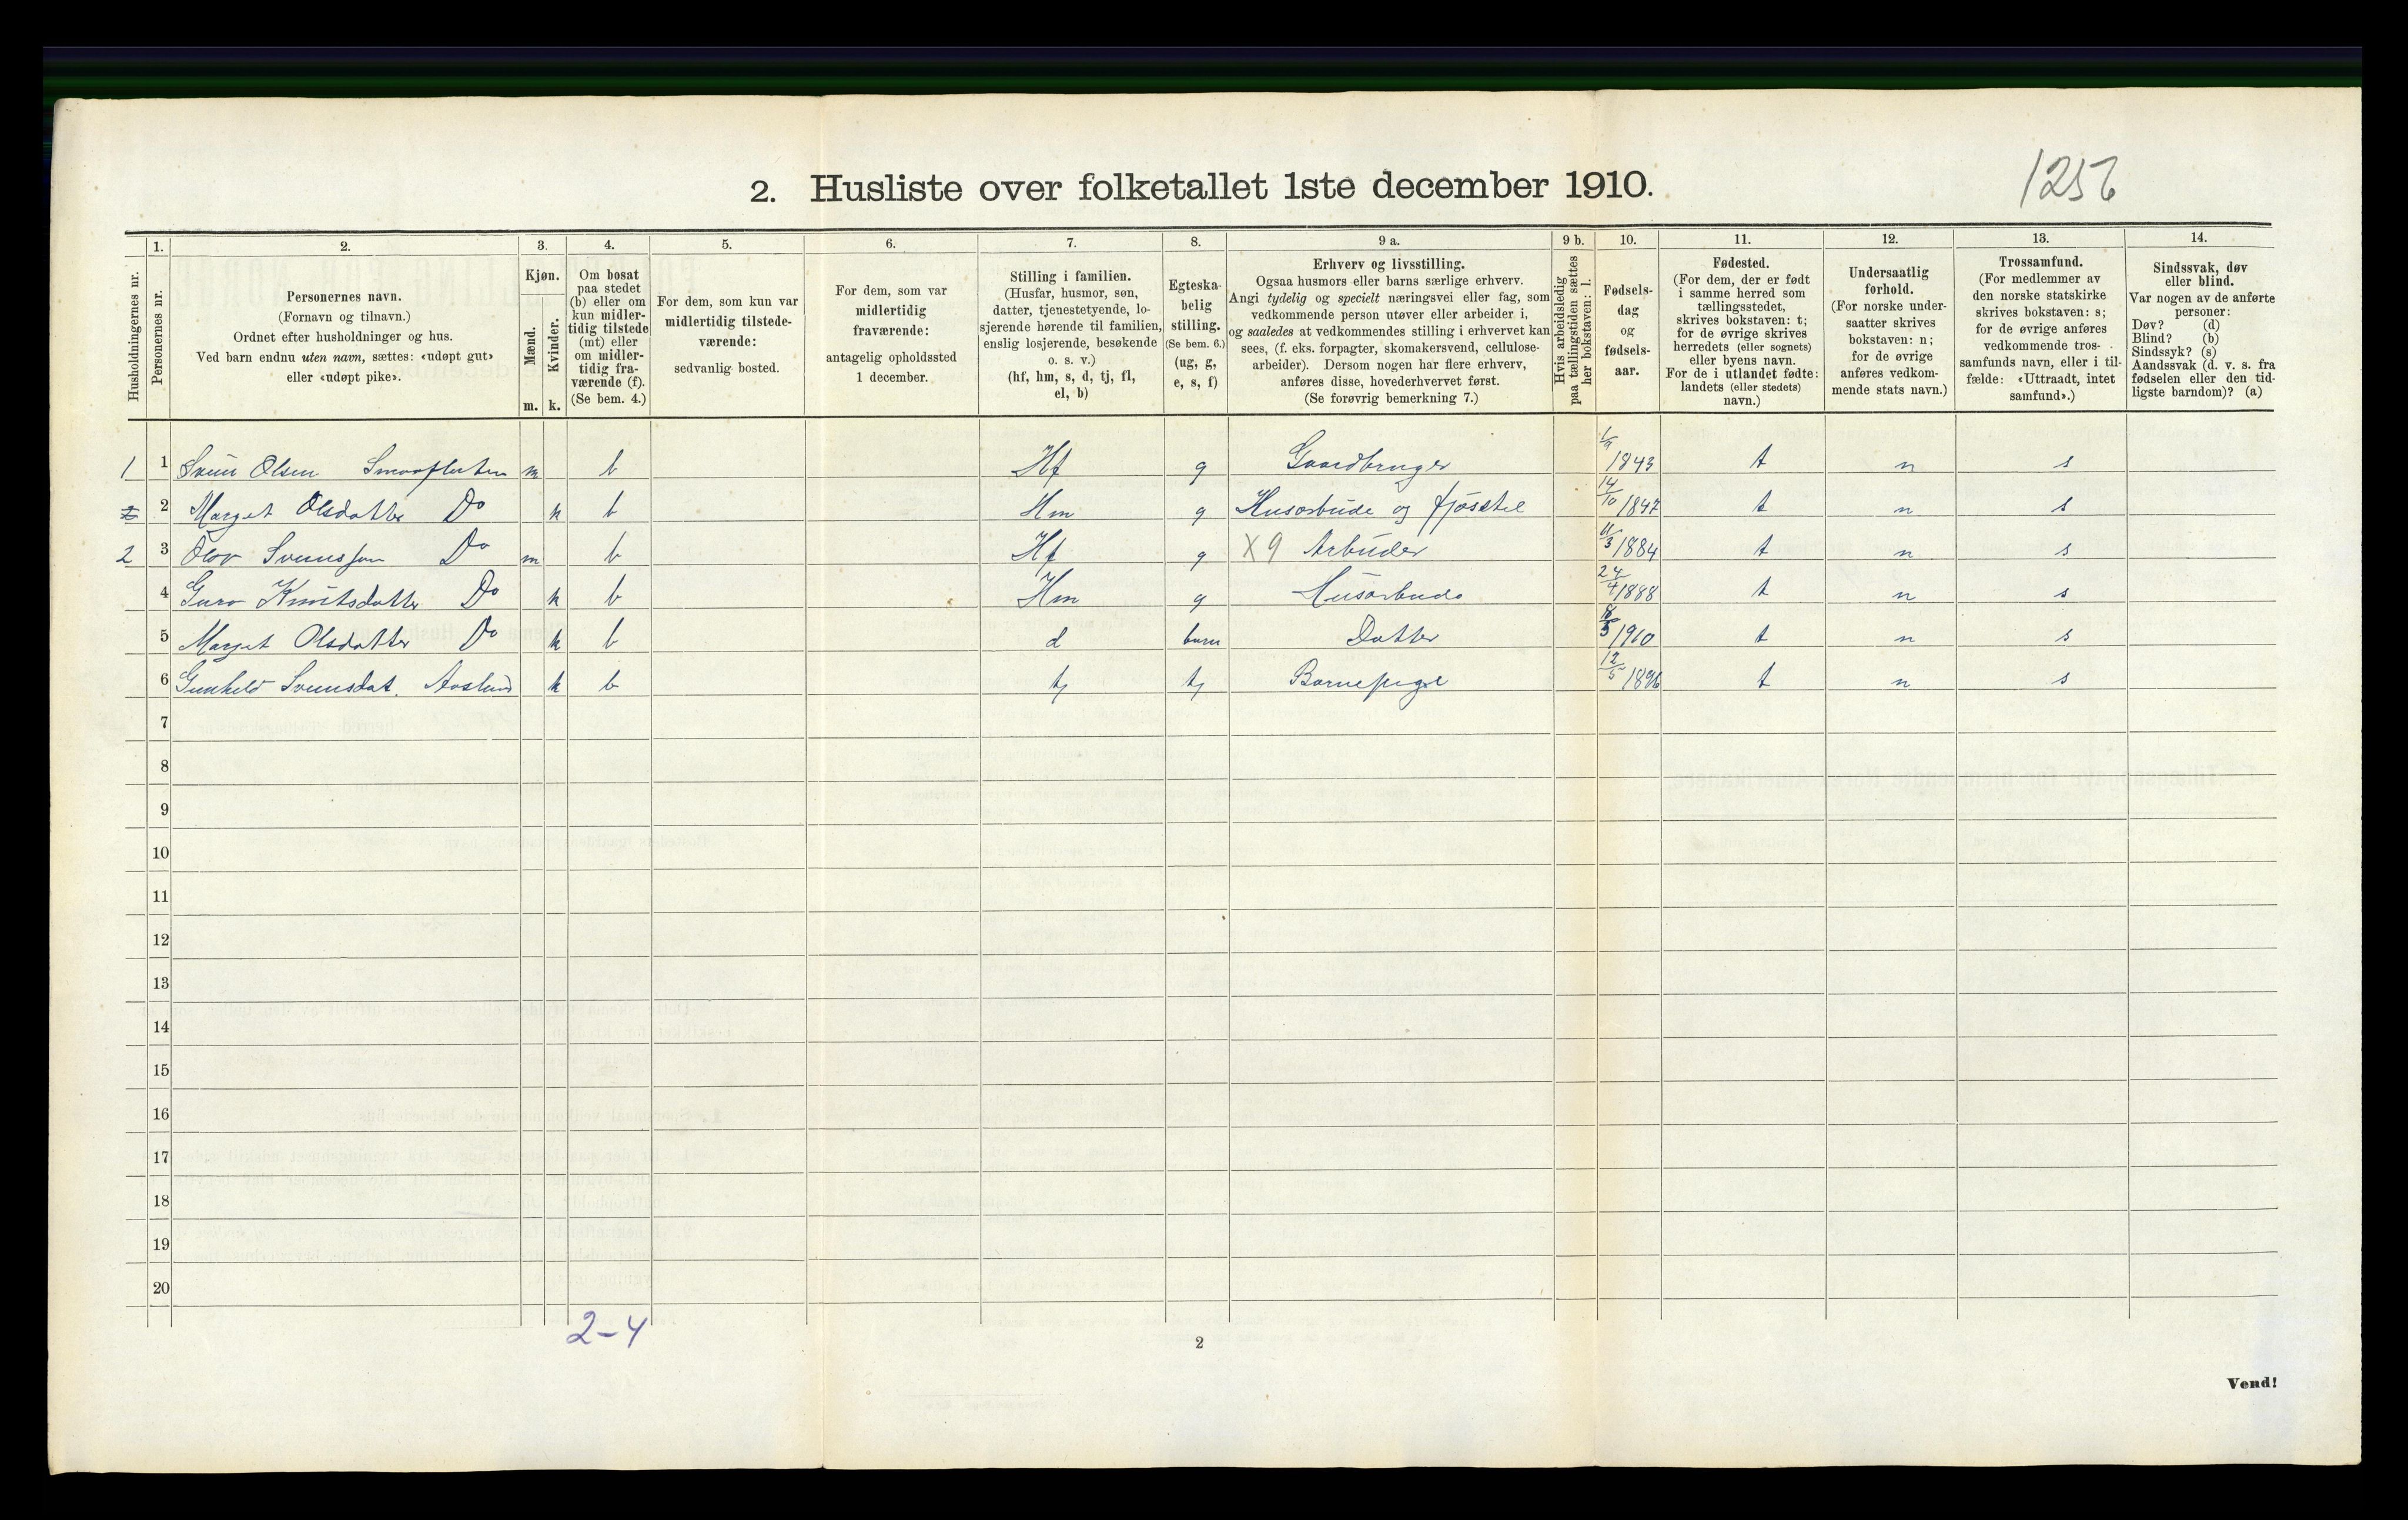 2. Husliste over folketallet 1ste december 1910.
1256
1. 2. 3. 4. 5. 6. 7. 8. 9 a. 9 b. 10. 11. 12. 13. 14.
Husholdningernes nr.
Personernes nr.
Personernes navn.
(Fornavn og tilnavn.)
Ordnet efter husholdninger og hus.
Ved barn endnu uten navn, sættes: «udøpt gut»
eller «udøpt pike».
Kjøn.
Mænd.
Kvinder.
m. k.
Om bosat
paa stedet
(b) eller om
kun midler-
tidig tilstede
(mt) eller
om midler-
tidig fra-
værende (f).
(Se bem. 4.)
For dem, som kun var
midlertidig tilstede-
værende:
sedvanlig bosted.
For dem, som var
midlertidig
fraværende:
antagelig opholdssted
1 december.
Stilling i familien.
(Husfar, husmor, søn,
datter, tjenestetyende, lo-
sjerende hørende til familien,
enslig losjerende, besøkende
o. s. v.)
(hf, hm, s, d, tj, fl,
el, b)
Egteska-
belig
stilling.
(Se bem. 6.)
(ug, g,
e, s, f)
Erhverv og livsstilling.
Ogsaa husmors eller barns særlige erhverv.
Angi tydelig og specielt næringsvei eller fag, som
vedkommende person utøver eller arbeider i,
og saaledes at vedkommendes stilling i erhvervet kan
sees, (f. eks. forpagter, skomakersvend, cellulose-
arbeider). Dersom nogen har flere erhverv,
anføres disse, hovederhvervet først.
(Se forøvrig bemerkning 7.)
Hvis arbeidsledig
paa tællingstiden sættes
her bokstaven: l.
Fødsels-
dag
og
fødsels-
aar.
Fødested.
(For dem, der er født
i samme herred som
tællingsstedet,
skrives bokstaven: t;
for de øvrige skrives
herredets (eller sognets)
eller byens navn.
For de i utlandet fødte:
landets (eller stedets)
navn.)
Undersaatlig
forhold.
(For norske under-
saatter skrives
bokstaven: n;
for de øvrige
anføres vedkom-
mende stats navn.)
Trossamfund.
(For medlemmer av
den norske statskirke
skrives bokstaven: s;
for de øvrige anføres
vedkommende tros-
samfunds navn, eller i til-
fælde: «Uttraadt, intet
samfund».)
Sindssvak, døv
eller blind.
Var nogen av de anførte
personer:
Døv? (d)
Blind? (b)
Sindssyk? (s)
Aandssvak (d. v. s. fra
fødselen eller den tid-
ligste barndom)? (a)
1 1 Olsen m b Hf g Gaardbruger 1/9 1843 t n s
2 2 Marget Olsdatter Do k b Hm g Husarbude og fjøsstel 14/10 1847 t n s
2 3 Olav Do m b Hf g X9 Arbuder 11/3 1884 t n s
4 Guro Knutsdatter Do k b Hm g Husarbude 24/4 1888 t n s
5 Marget Olsdatter Do k b d barn Datter 1910 t n s
6 Gunhild Aaslund k b tj tj Barnepige 12/5 1896 t n s
7
8
9
10
11
12
13
14
15
16
17
18
19
20
2-4
2
Vend!